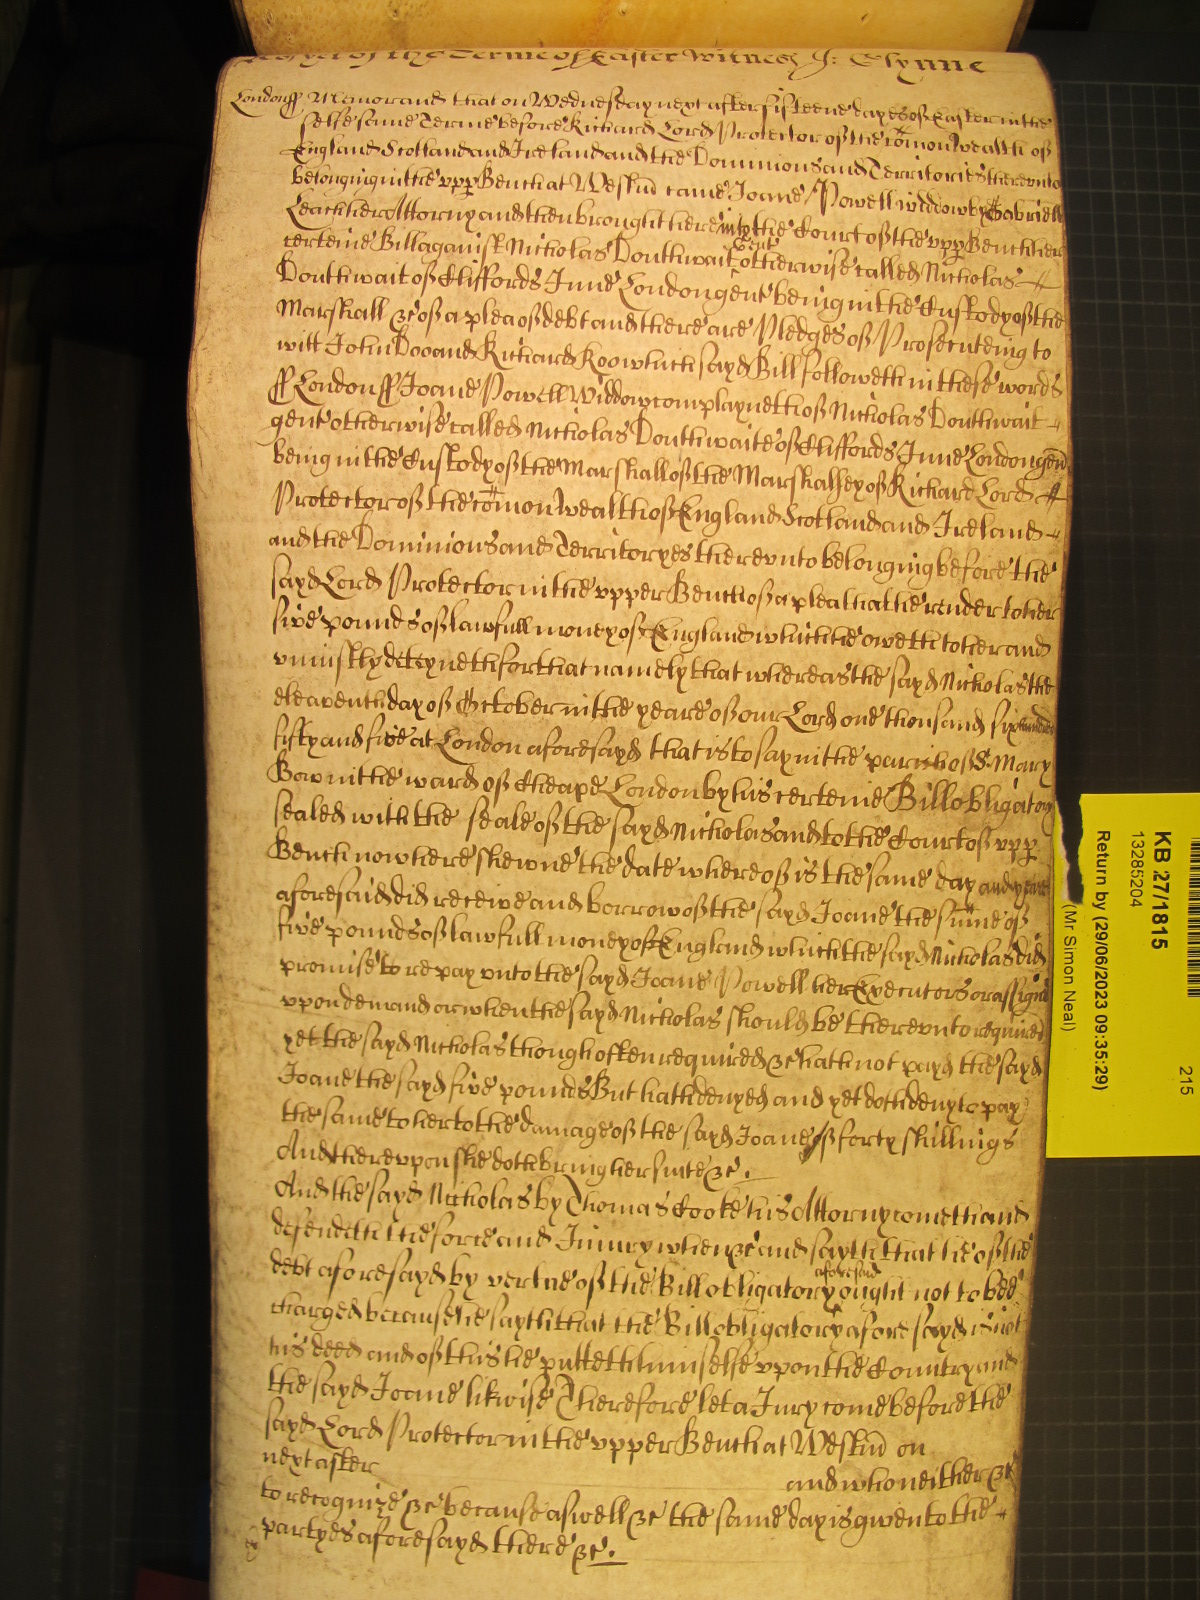 of the Terme of Easter Witnes J: Glynne
London ss Memorand that on Wednesday next after fifteene dayes of Easter in the
selfe same Terme before Richard Lord Protector of the Comon Wealth of
England Scotland and Ireland and the Dominions and Territories thereunto
belonging in the upp Bench at Westm came Joane Powell widdow by Gabriell
Leach her Attorny and then brought here into the Court of the upp Bench her
certeine Bill against Nicholas Douthwait Gent otherwise called Nicholas
Douthwait of Cliffords Inne London gent being in the Custody of the
Marshall &c of a plea of debt and there are Pledges of Prosecuteing to
witt John Doo and Richard Roo which sayd Bill followeth in these words
ss London ss Joane Powell Widdow complayneth of Nicholas Douthwait
gent otherwise called Nicholas Douthwaite of Cliffords Inne London gent
being in the Custody of the Marshall of the Marshalsey of Richard Lord
Protector of the Comon Wealth of England Scotland and Ireland
and the Dominions and Territoryes thereunto belonging before the
sayd Lord Protector in the upper Bench of a plea that he render to her
five pounds of lawfull money of England which he oweth to her and
uniustly deteyneth for that namely that whereas the sayd Nicholas the
eleaventh day of October in the yeare of our Lord one thousand six hundred
fifty and five at London aforesayd that is to say in the parish of S. Mary
Bow in the ward of Cheape London by his certeine Bill obligatory
sealed with the seale of the sayd Nicholas and to the Court of upp
Bench now here shewne the date whereof is the same day and yeare
aforesaid did receive and borrow of the sayd Joane the sume of
five pounds of lawfull money of England which the sayd Nicholas did
promise to repay unto the sayd Joane Powell her Executors or assignes
upon demand or when the sayd Nicholas should be thereunto required
yet the sayd Nicholas though often required &c hath not payd the sayd
Joane the sayd five pounds But hath denyed and yet doth deny to pay
the same to her to the damage of the sayd Joane of forty shillings
And thereupon she doth bring her suite &c.
And the sayd Nicholas by Thomas Cooke his Attorny cometh and
defendeth the force and Iniury when &c and sayth that he of the
debt aforesayd by vertue of the Bill obligatory aforesaid ought not to bee
charged because he sayth that the Bill obligatory aforesayd is not
his deed and of this he putteth himselfe upon the Country and
the sayd Joane likwise Therefore let a Jury come before the
sayd Lord Protector in the upper Bench at Westm on
next after and who neither &c
to recognize &c because aswell &c the same day is given to the
partyes aforesayd there &c.
KB 27/1815
13285204
215
Return by (29/06/2023 09:35:29)
(Mr Simon Neal)